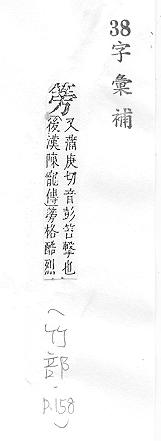 38字彙補
篣
又蒲庚切音彭笞擊也
後漢陳寵傳篣格酷烈
(竹部.
p.158)